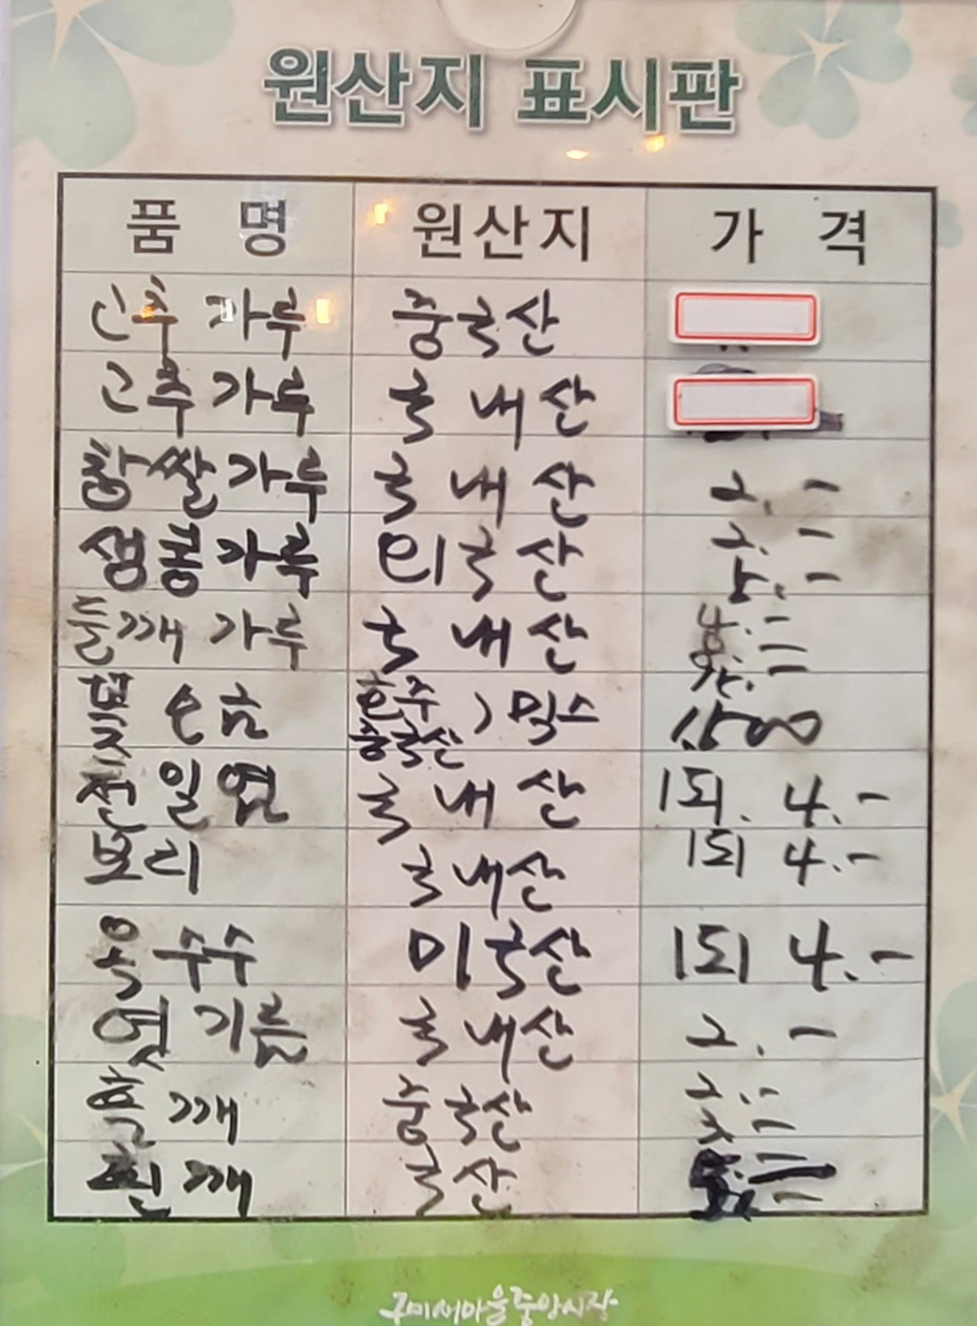 원산지 표시판
품 명 원산지 가 격
고추 가루 중국산
고추 가루 국내산
찹쌀가루 국내산 2.-
국산
들깨 가루 국내산
볶 소금 호주 중국산 > 믹스 1,500
천일염 국내산 1되. 4.-
보리 국내산 1되 4.-
옥수수 미국산 1되 4.-
엿기름 국내산 2.-
깨 중국산
흰깨 국산
구미새마을중앙시장